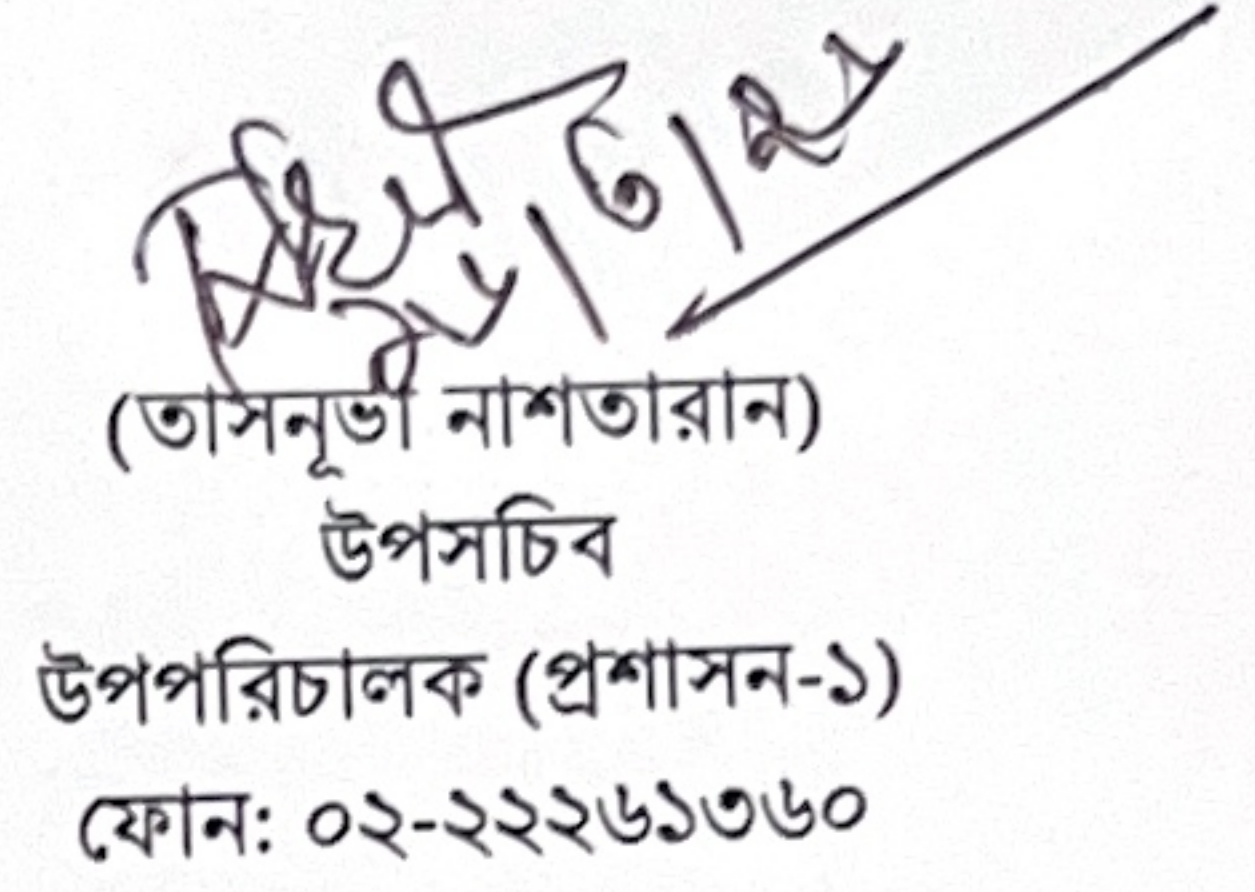 (তাসনূভা নাশতারান)
উপসচিব
উপপরিচালক (প্রশাসন-১)
ফোন: ০২-২২২৬১৩৬০